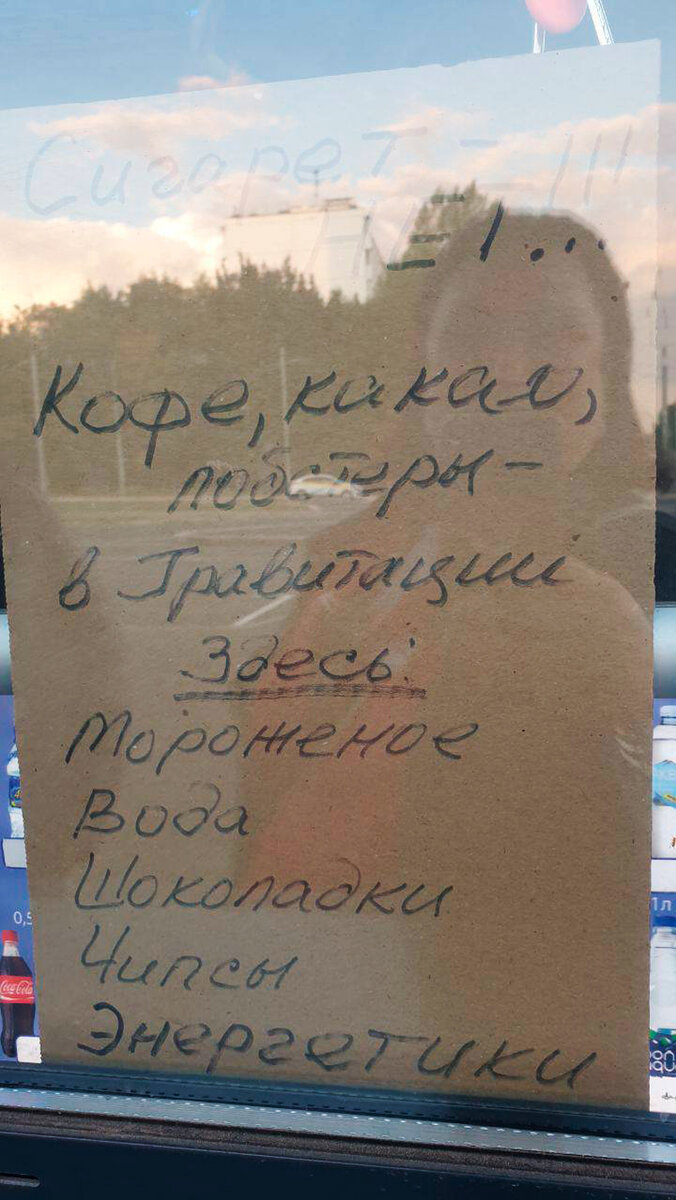 Сигарет
Кофе, какао,
лобстеры –
в Гравитации
Здесь:
Мороженое
Вода
Шоколадки
Чипсы
Энергетики
0,5
Coca-Cola
1л